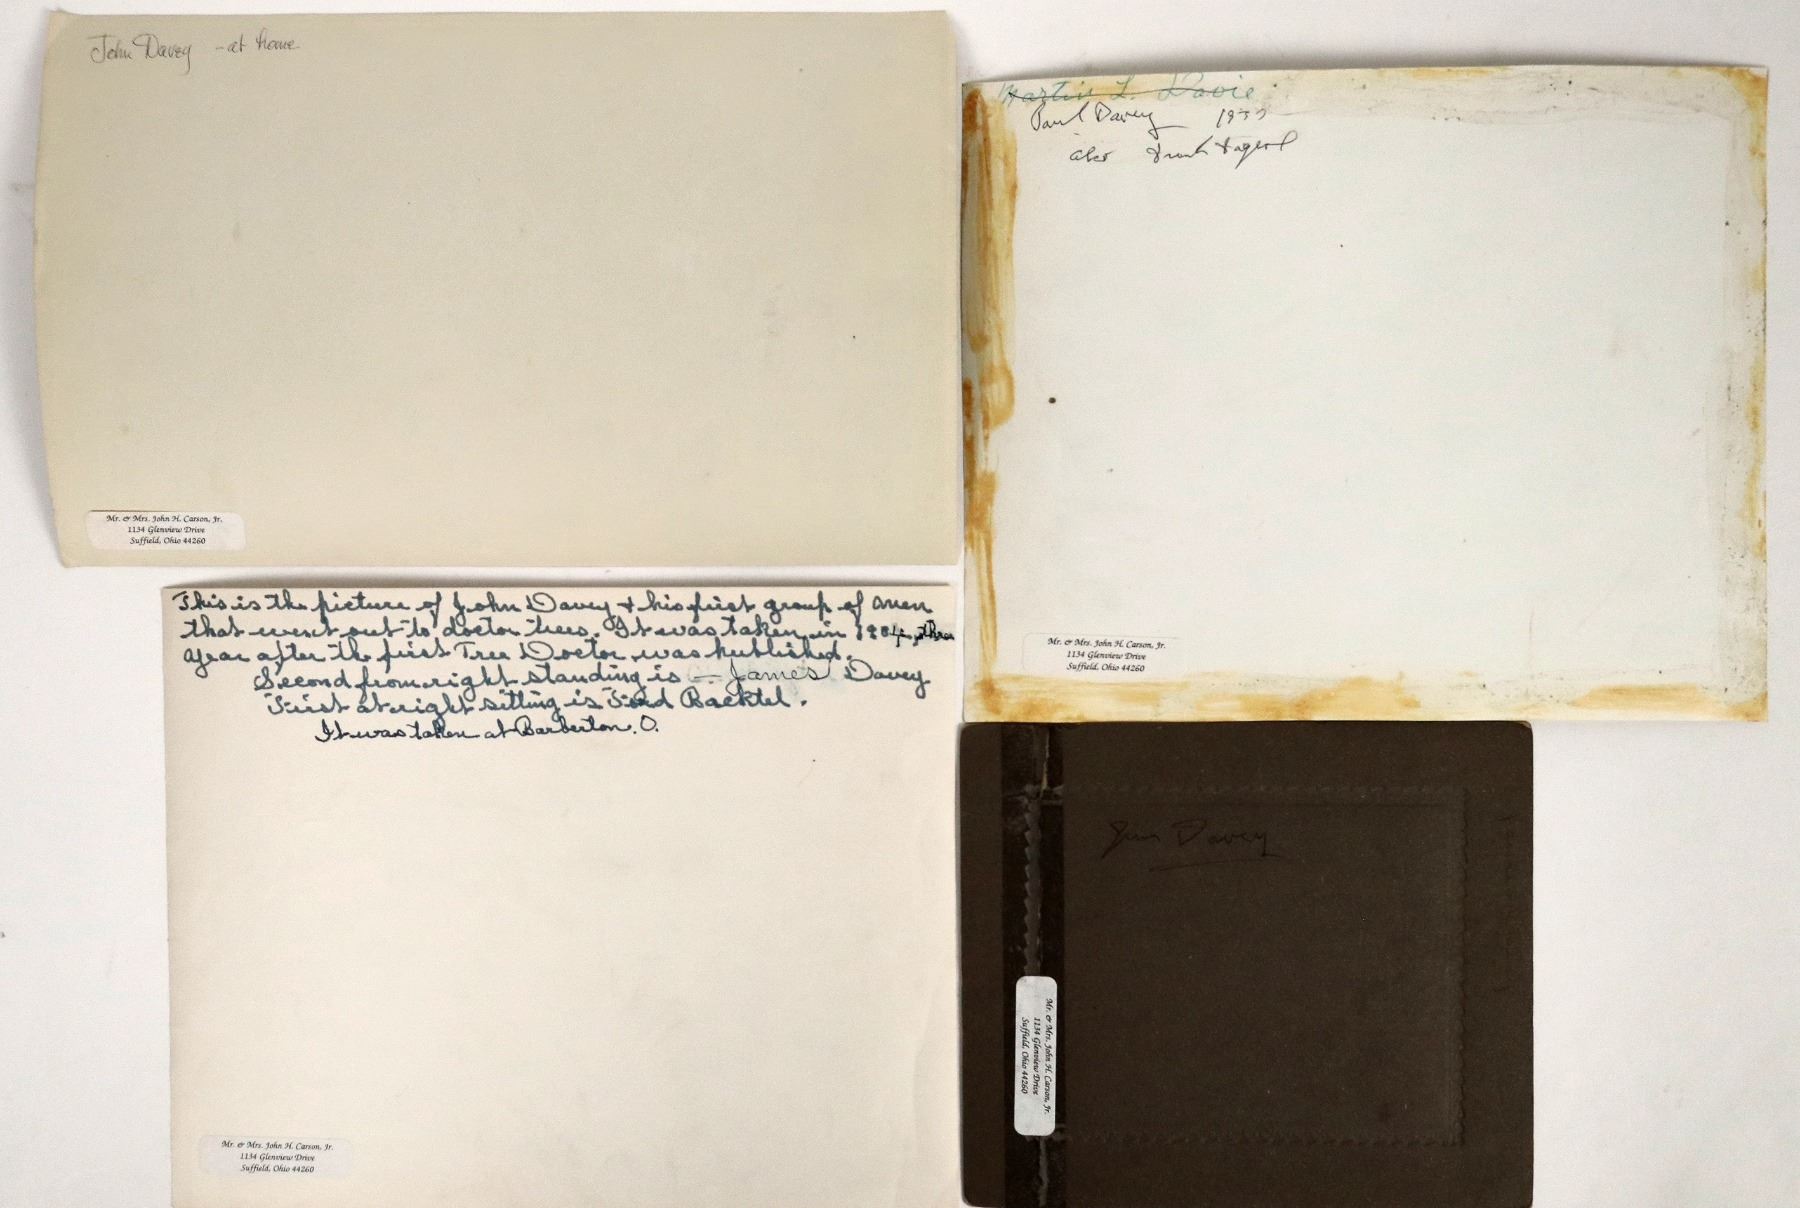 John Davey - at home
Mr. & Mrs. John H. Carson, Jr.
1134 Glenview Drive
Suffield, Ohio 44260
Martin L. Davie
Paul Davey
also
Mr. & Mrs. John H. Carson, Jr.
1134 Glenview Drive
Suffield, Ohio 44260
This is the picture of John Davey & his first group of men
that went out to doctor trees. It was taken in 1904, three
year after the first Tree Doctor was published.
Second from right standing is - James Davey
First at right sitting is Ford Backtel.
It was taken at Barberton. O.
Mr. & Mrs. John H. Carson, Jr.
1134 Glenview Drive
Suffield, Ohio 44260
Jim Davey
Mr. & Mrs. John H. Carson, Jr.
1134 Glenview Drive
Suffield, Ohio 44260